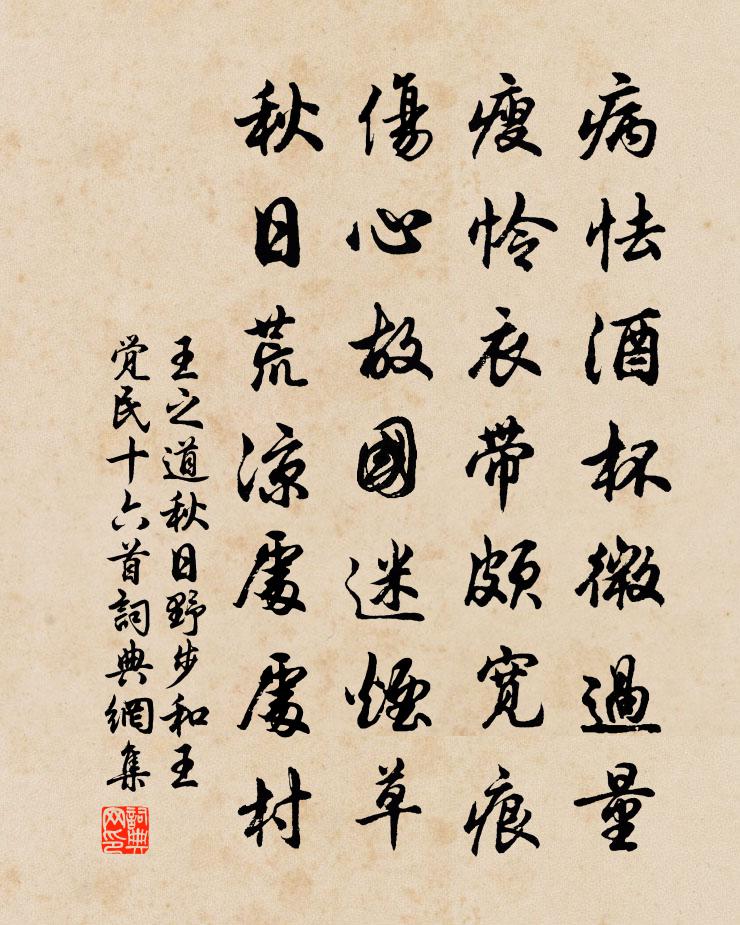 病怯酒杯微過量
瘦憐衣帶頗寬痕
傷心故國迷煙草
秋日荒涼處處村
王之道秋日野步和王
覺民十六首詞典網集
詞典網印